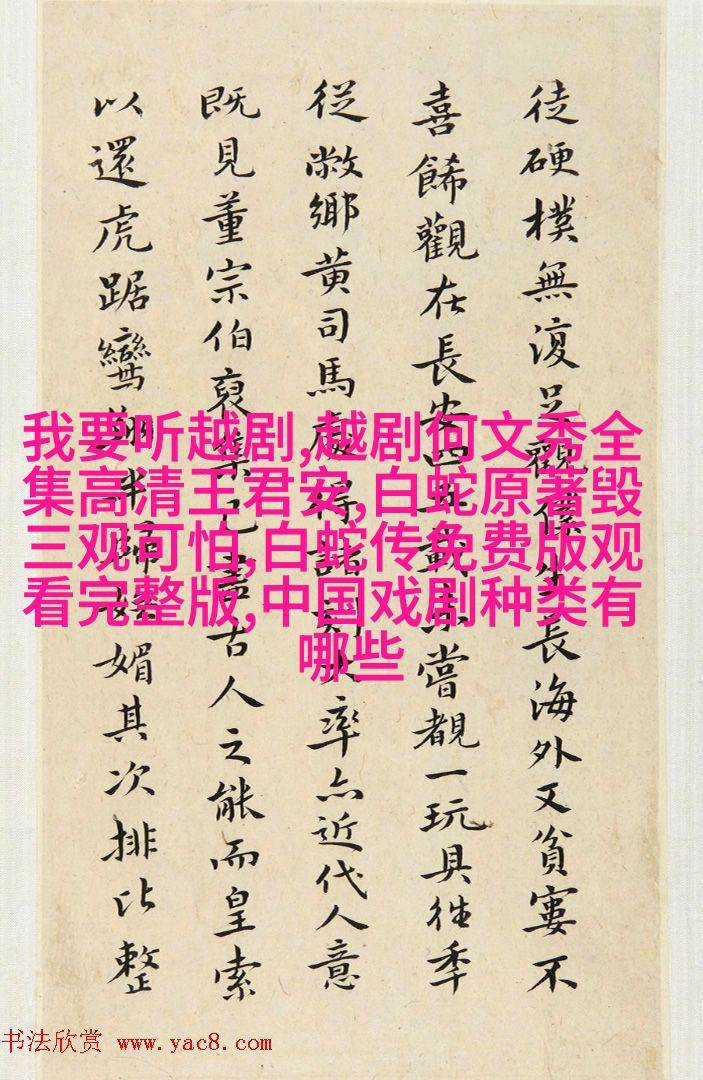 徒硬樸無復足觀僕生長海外又貧窶不
喜餙觀在長安四載嘗覩一玩具徃季
從敝鄉黄司馬處得諸刻大率亦近代人意
既見董宗伯裒集已古人之能而皇索
以還虎踞鸞翔歸媚其次排比整
我要听越剧,越剧何文秀全
集高清王君安,白蛇原著毁
三观可怕,白蛇传免费版观
看完整版,中国戏剧种类有
哪些
书法欣赏 www.yac8.com